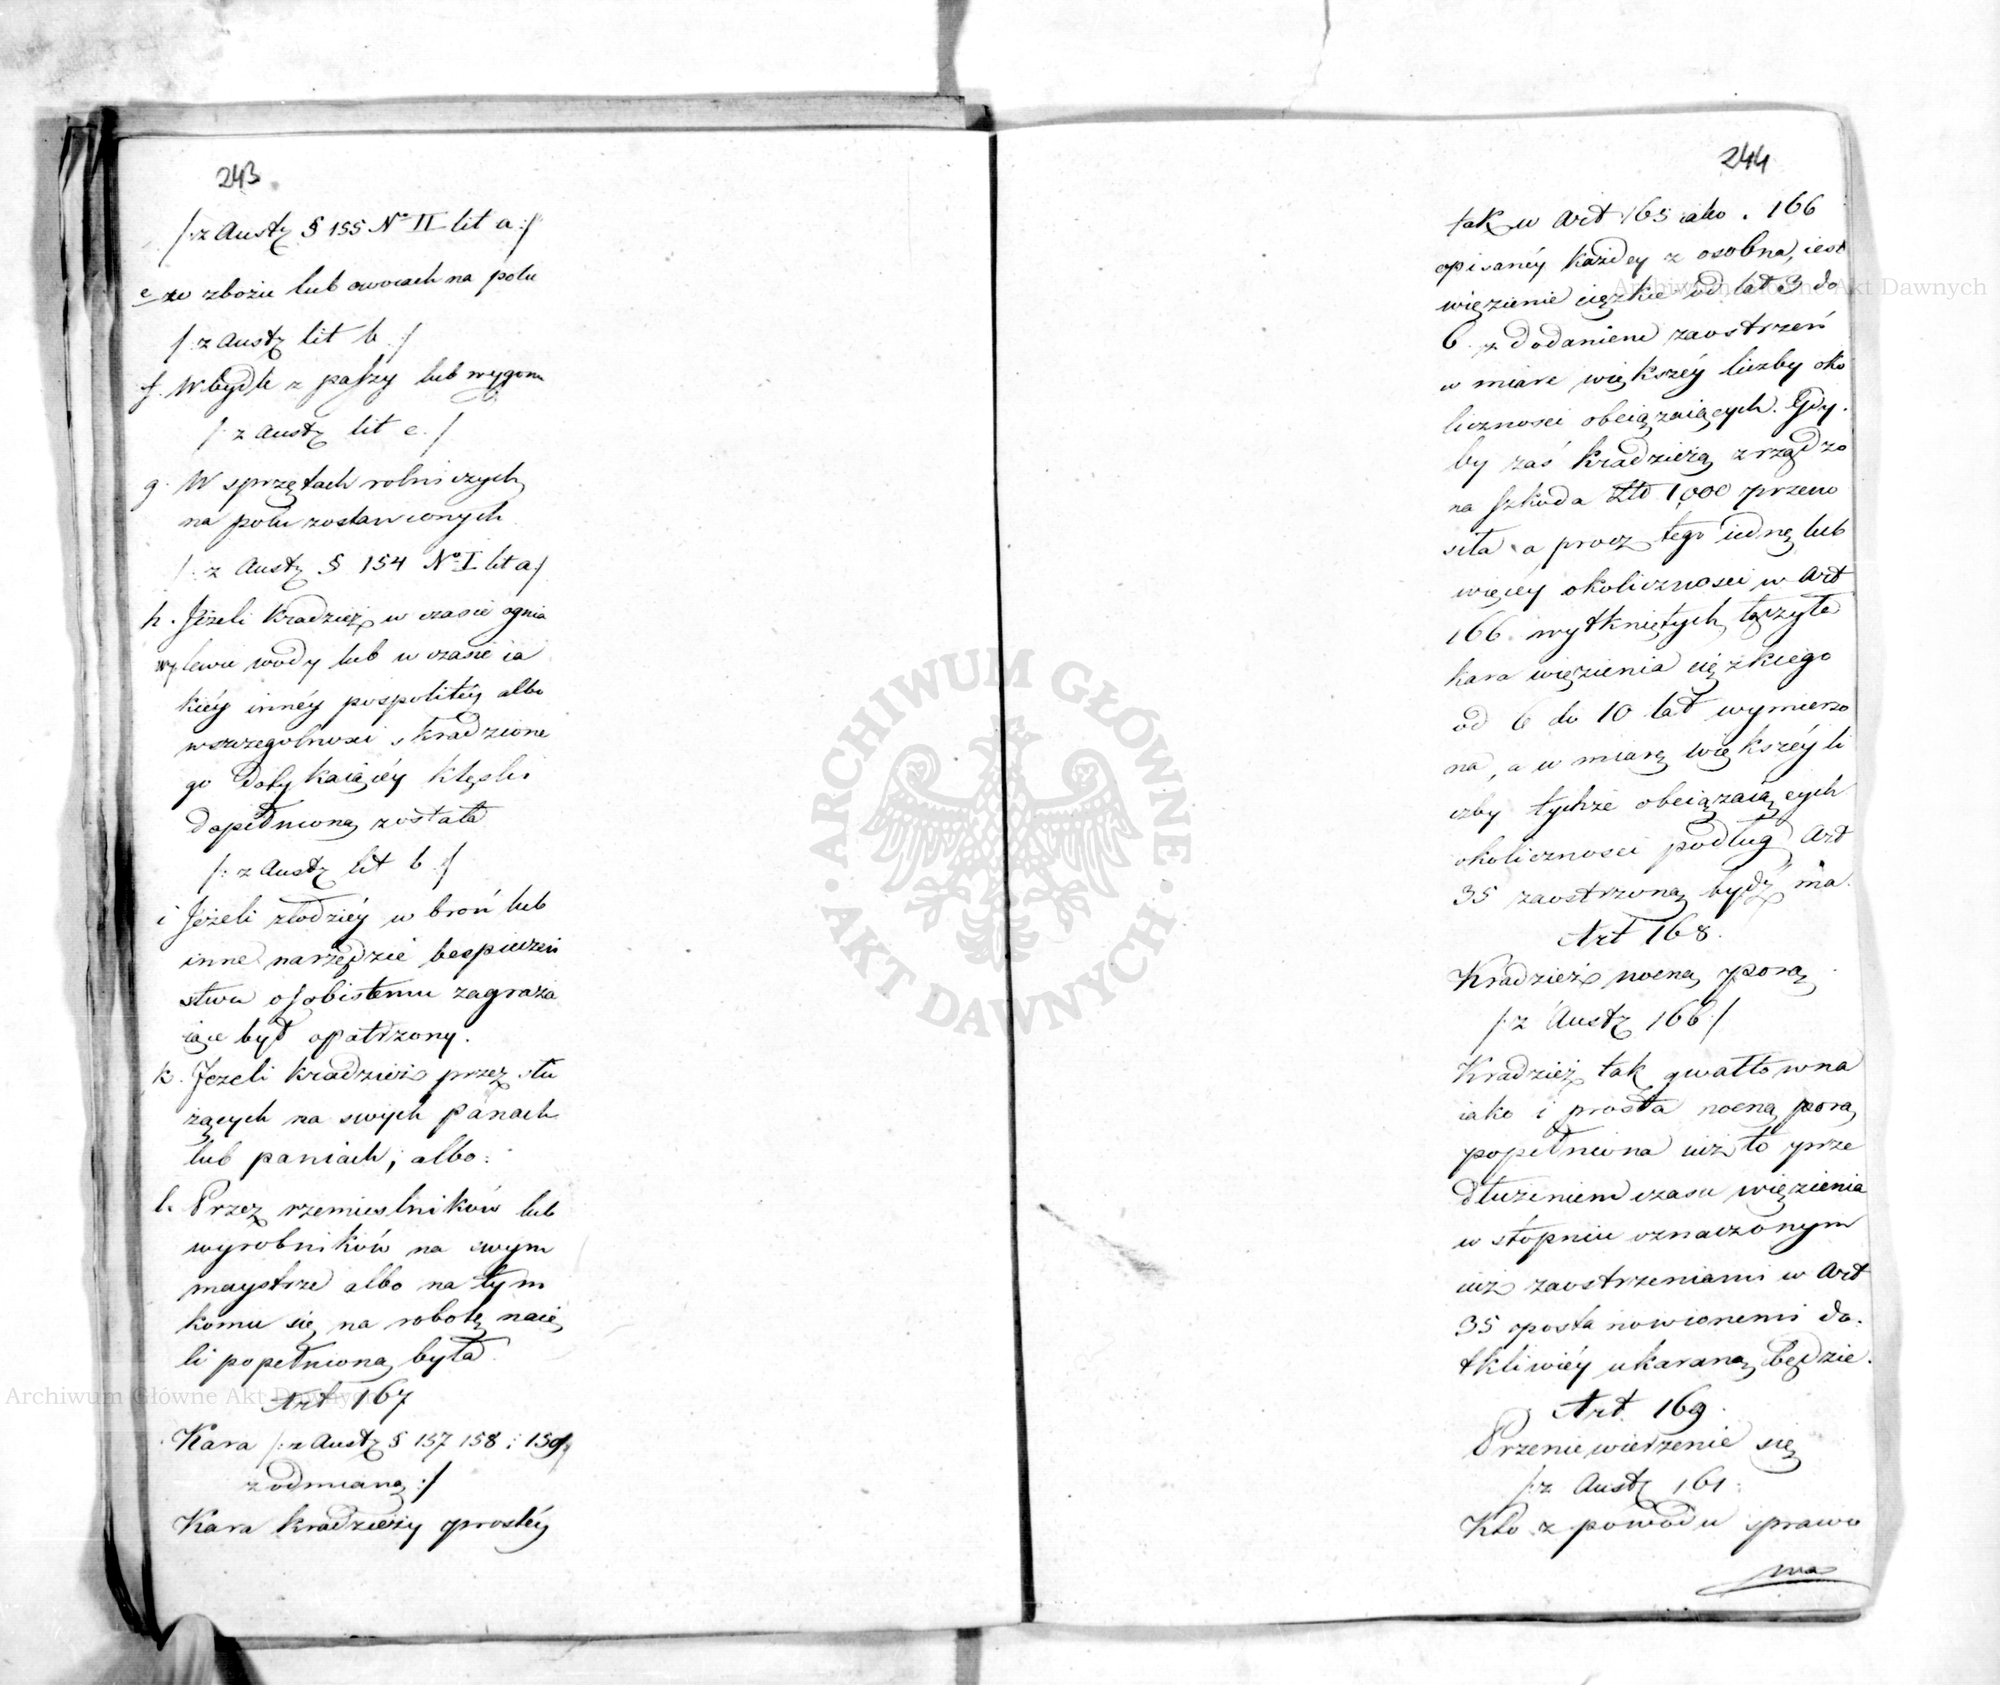 243
/: z Austr § 155 No II lit a :/
e we zbożu lub owocach na polu
/: z Austr lit b :/
f. W bydle z paszy lub wygonu
/: z Austr lit c :/
g. W sprzętach rolniczych
na polu zostawionych
/: z Austr § 154 No I lit a :/
h. Jeżeli kradzież w czasie ognia
wylewu wody lub w czasie ia
kiéy innéy pospolitéy albo
w szczegolności skradzione
go dotykaiącéy klęski
dopełnioną została
/: z Austr lit b :/
i Jeżeli złodziéy w broń lub
inne narzędzie bespieczeń
stwu osobistemu zagraża
iące był opatrzony.
k. Jeżeli kradzież przez słu
żących na swych panach
lub paniach; albo:
l. Przez rzemieslników lub
wyrobników na swym
maystrze albo na tym
komu się na robotę naię
li popełnioną była.
Art 167
Kara /: z Austr § 157 158 i 159
z odmianą :/
Kara kradzieży prostéy
244
tak w Art 165 iako 166
opisanéy każdey z osobna, iest
więzienie cięzkie od lat 3 do
6 z dodaniem zaostrzeń
w miare większéy liczby oko
liczności obciązaiących. Gdy
by zaś kradzieżą zrządzo
na szkoda Złt 1,000 przeno
siła a procz tego iednę lub
więcéy okoliczności w Art
166 wytkniętych łączyła
kara więzienia cięzkiego
od 6 do 10 lat wymierzo
na, a w miarę większéy li
czby tychże obciązaiących
okoliczności podług Art
35 zaostrzoną bydź ma.
Art 168.
Kradzież nocną porą
/: z Austr 166 :/
Kradzież tak gwałtowna
iako i prosta nocną porą
popełniona iuż to prze
dłużeniem czasu więzienia
w stopniu oznaczonym
iuż zaostrzeniami w Art
35 postanowionemi do.
tkliwiéy ukaraną będzie.
Art. 169.
Przeniewierzenie się
/: z Austr 161 :
Kto z powodu sprawo
wa
ARCHIWUM GŁÓWNE
AKT DAWNYCH
Archiwum Główne Akt Dawnych
Archiwum Główne Akt Dawnych